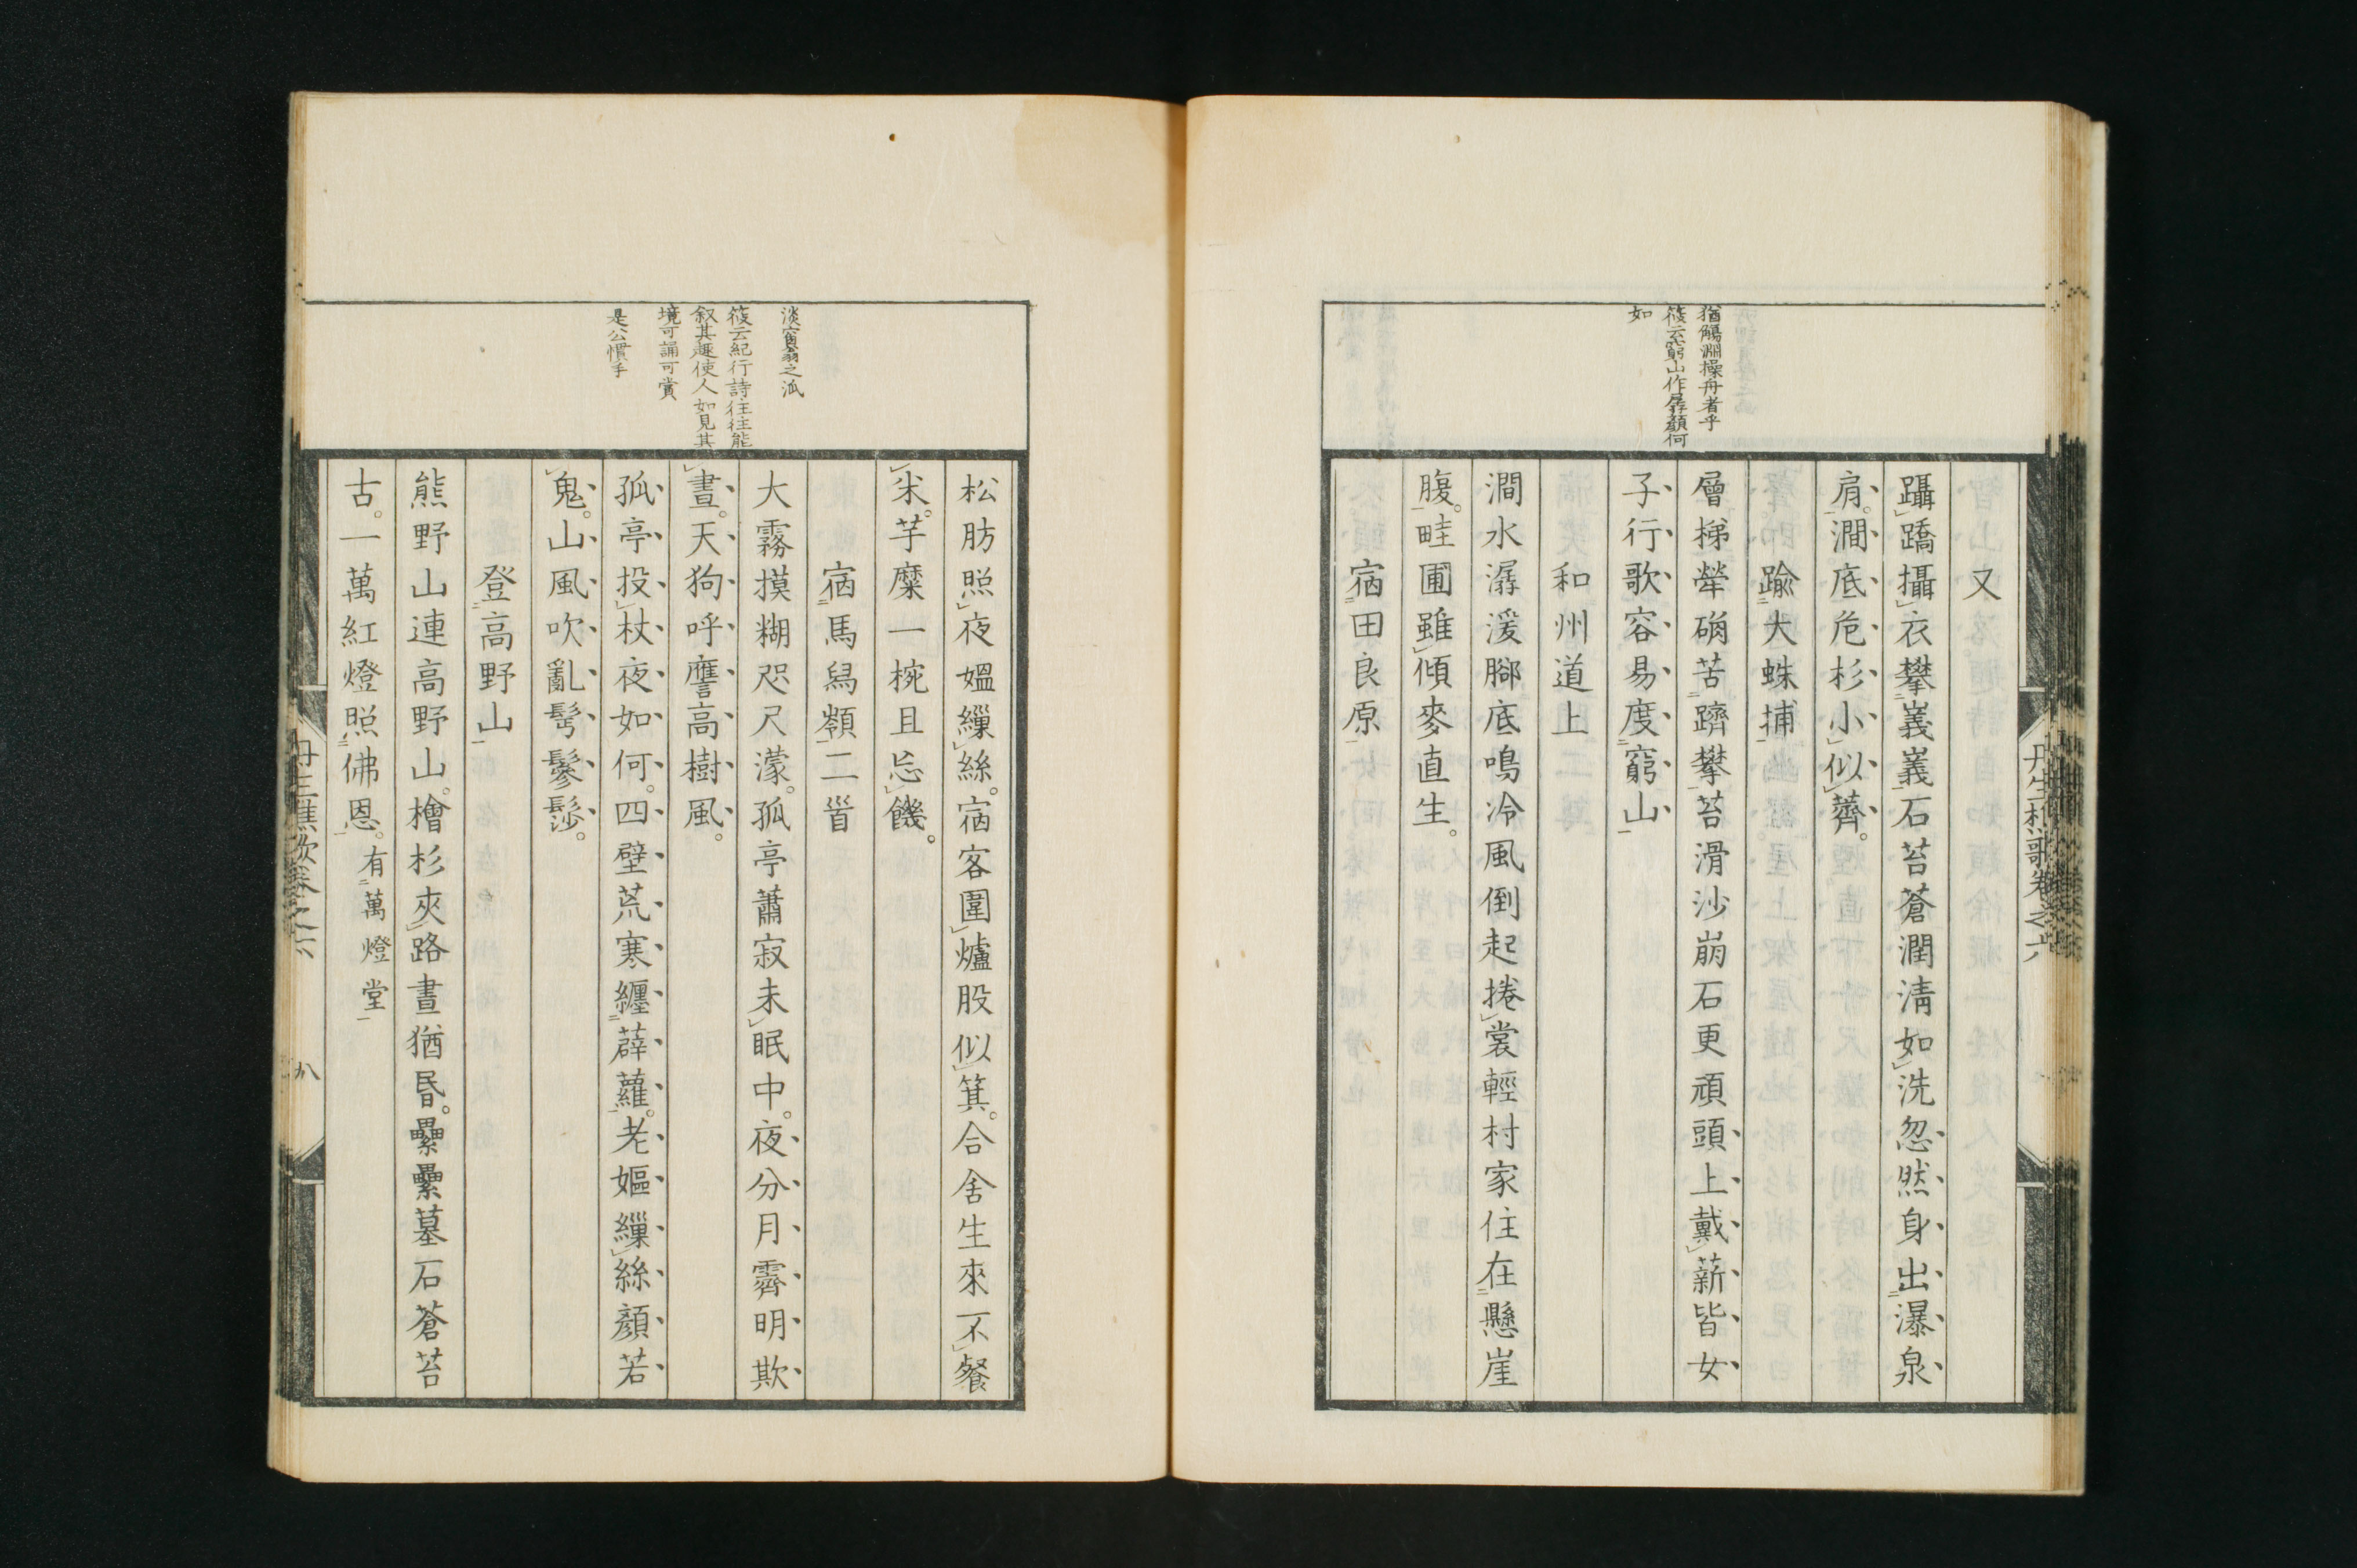 猶觴淵操舟者乎
筱云窮山作孱顏何
如
又
躡蹻攝衣攀義義石苔蒼潤淸如洗忽然身出瀑泉
肩。澗底危杉小似薺。
踰大蛛捕
層梯犖确苦躋攀苔滑沙崩石更頑頭上戴薪皆女
子行歌容易度窮山
和州道上
澗水潺湲腳底鳴冷風倒起捲裳輕村家住在懸崖
腹。畦圃雖傾麥直生。
宿田良原
丹生樵歌卷之六
淡窗翁之派
筱云紀行詩往往能
叙其趣使人如見其
境可誦可賞
是公慣手
松肪照夜媼繅絲。宿客圍爐股似箕。合舍生來不餐
米。芋糜一椀且忘饑。
宿馬舄嶺二首
大霧摸糊咫尺濛。孤亭蕭寂未眠中。夜分月霽明欺
晝。天狗呼鷹高樹風。
孤亭投杖夜如何。四壁荒寒纏薜蘿。老嫗繅絲顏若
鬼。山風吹亂髩鬖髿。
登高野山
熊野山連高野山。檜杉夾路晝猶昬。纍纍墓石蒼苔
古。一萬紅燈照佛恩。有萬燈堂
丹生樵歌卷之六
八